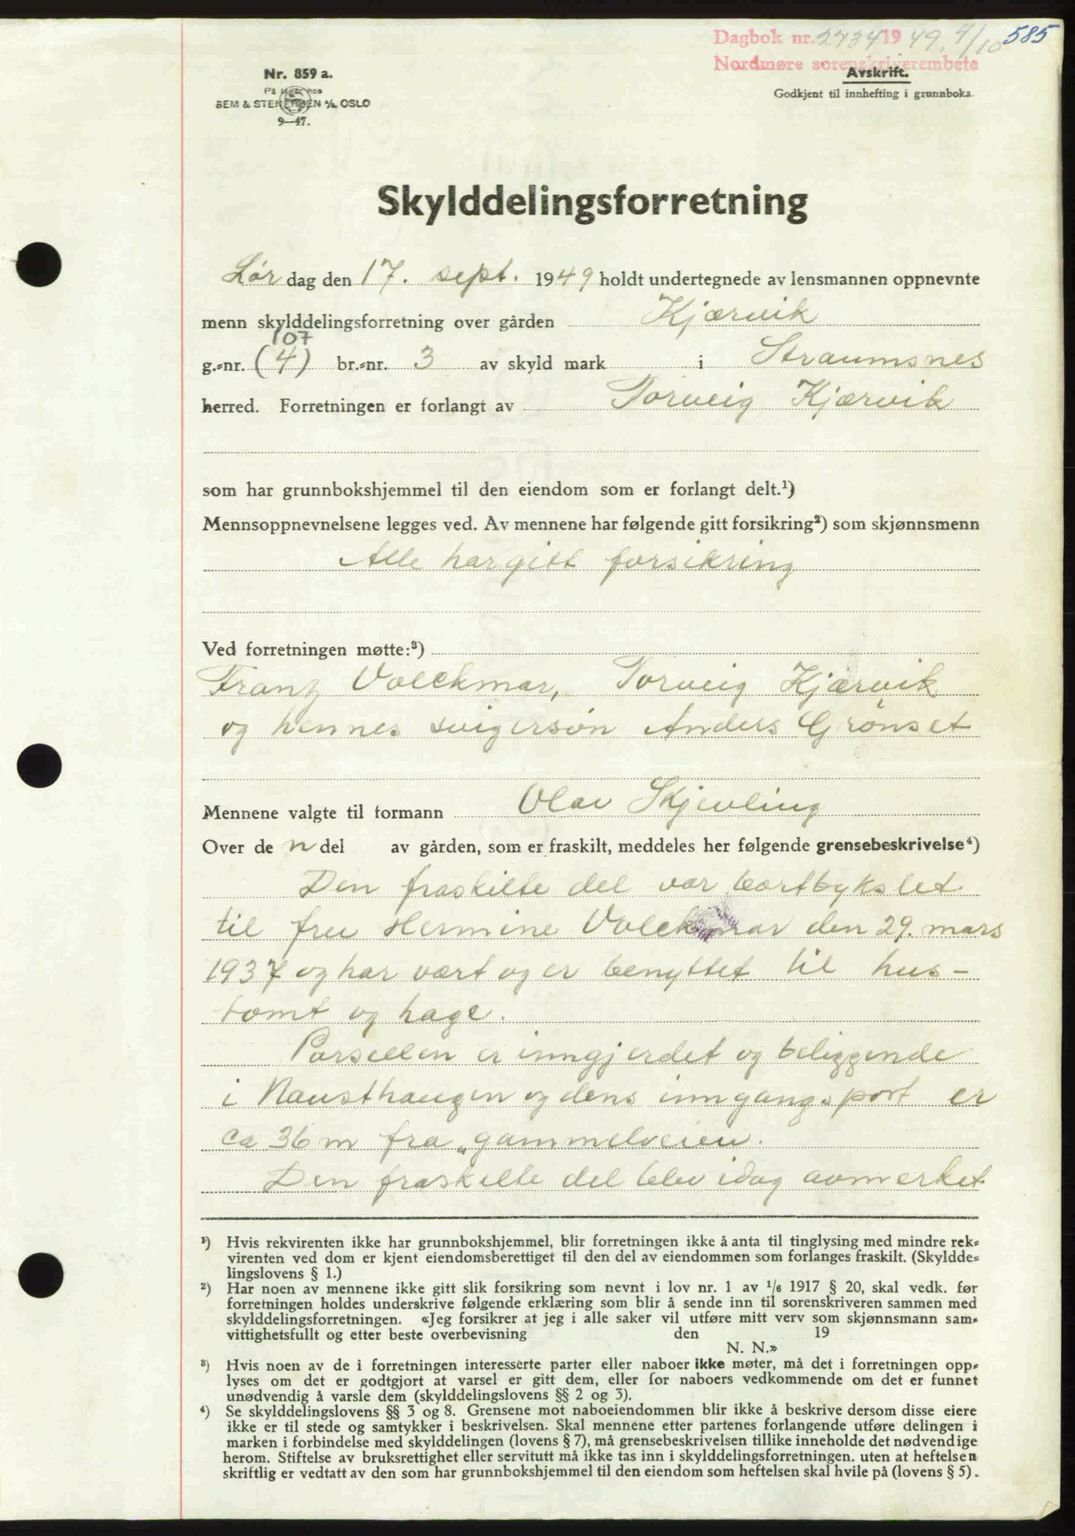 Dagbok nr. 2734 1949, 4/10 585
Nordmøre sorenskriverembete
Avskrift.
Godkjent til innhefting i grunnboka.
Nr. 859 a.
På lager hos
SEM & STENERSEN A/S, OSLO
9—47.
Skylddelingsforretning
Lør dag den 17. sept. 1949 holdt undertegnede av lensmannen oppnevnte
menn skylddelingsforretning over gården Kjærvik
107
g.-nr. (4) br.-nr. 3 av skyld mark i Straumsnes
herred. Forretningen er forlangt av Torveig Kjærvik
som har grunnbokshjemmel til den eiendom som er forlangt delt.¹)
Mennsoppnevnelsene legges ved. Av mennene har følgende gitt forsikring²) som skjønnsmenn
Alle har gitt forsikring
Ved forretningen møtte:³)
Franz Volckmar, Torveig Kjærvik
og hennes svigersøn Anders Grønset
Mennene valgte til formann Olav Skjevling
Over de n del av gården, som er fraskilt, meddeles her følgende grensebeskrivelse⁴)
Den fraskilte del var bortbykslet
til fru Hermine Volckmar den 29. mars
1937 og har vært og er benyttet til hus-
tomt og hage.
Parsellen er inngjerdet og beliggende
i Nausthaugen og dens inngangsport er
ca 36 m fra „gammelveien.
Den fraskilte del blev idag avmerket
¹) Hvis rekvirenten ikke har grunnbokshjemmel, blir forretningen ikke å anta til tinglysing med mindre rek-
virenten ved dom er kjent eiendomsberettiget til den del av eiendommen som forlanges fraskilt. (Skyldde-
lingslovens § 1.)
²) Har noen av mennene ikke gitt slik forsikring som nevnt i lov nr. 1 av 1/6 1917 § 20, skal vedk. før
forretningen holdes underskrive følgende erklæring som blir å sende inn til sorenskriveren sammen med
skylddelingsforretningen. «Jeg forsikrer at jeg i alle saker vil utføre mitt verv som skjønnsmann sam-
vittighetsfullt og etter beste overbevisning den 19
N. N.»
³) Hvis noen av de i forretningen interesserte parter eller naboer ikke møter, må det i forretningen opp-
lyses om det er godtgjort at varsel er gitt dem, eller for naboers vedkommende om det er funnet
unødvendig å varsle dem (skylddelingslovens §§ 2 og 3).
⁴) Se skylddelingslovens §§ 3 og 8. Grensene mot naboeiendommen blir ikke å beskrive dersom disse eiere
ikke er til stede og samtykker i beskrivelsen. Skal mennene etter partenes forlangende utføre delingen i
marken i forbindelse med skylddelingen (lovens § 7), må grensebeskrivelsen tillike inneholde det nødvendige
herom. Stiftelse av bruksrettighet eller servitutt må ikke tas inn i skylddelingsforretningen. uten at heftelsen
skriftlig er vedtatt av den som har grunnbokshjemmel til den eiendom som heftelsen skal hvile på (lovens § 5).